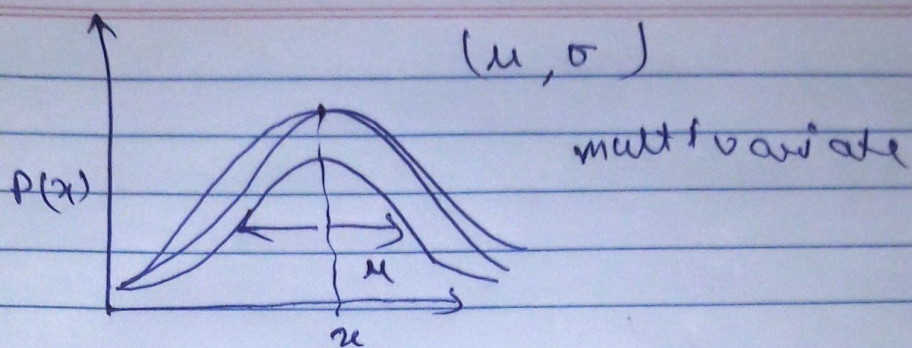 (μ, σ)
multivariate
P(x)
μ
x